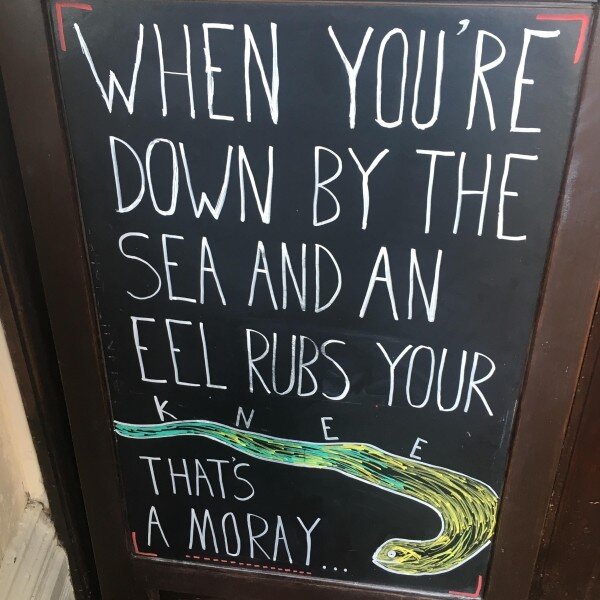 WHEN YOU'RE
DOWN BY THE
SEA AND AN
EEL RUBS YOUR
KNEE
THAT'S
A MORAY...